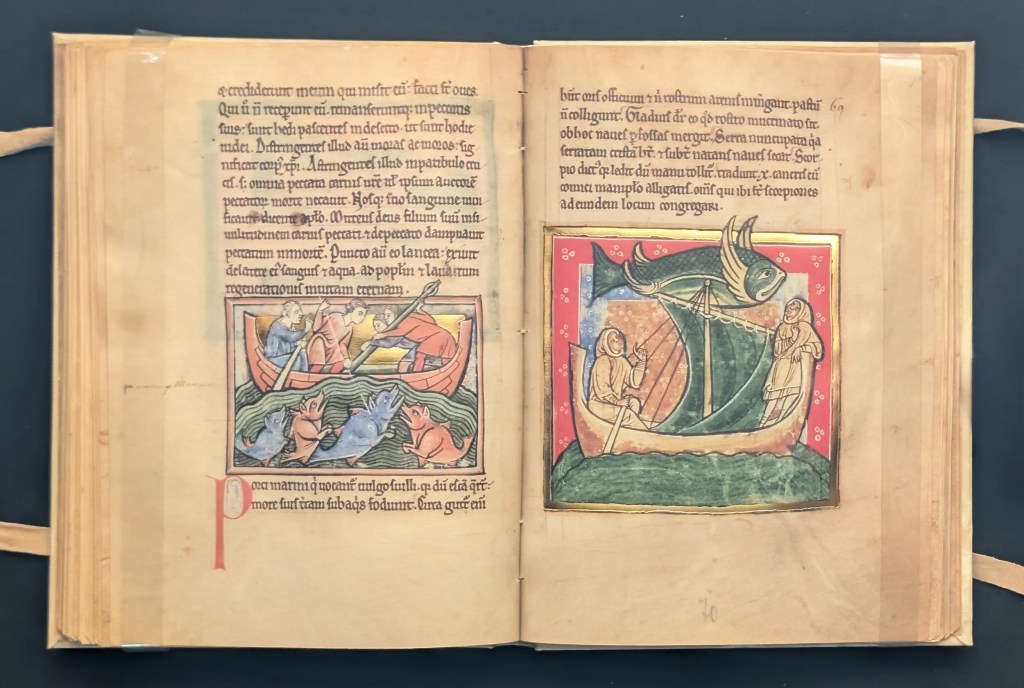 & crediderunt meum qui misit eū· facti sr̄ oues.
Qui ū n̄ recep̄unt eū. remanseruntq; in peccatis
suis· sunt hedi pascentes in deserto. ut sunt hodie
iudei. Distringentes illud aū moras ac moros· sig
nificat corp᷒ xp̄i. Astringentes illud in patibulo cru
cis. s; omnia peccata carnis
peccator̄ morte necauit. Nos q; suo sanguine
dicente aplō. Mittens deus filium suū in si
militudinem carnis peccati & de peccato dampnauit
peccatum in morte. Puncto aū eo lancea· exiuit
de latere ei᷒ sanguis & aqua. ad popl̄m & lauacrum
regenerationis in uitam eternam.
Porci marini q̄ uocant᷒ uulgo suilli. q̄ dū escā q̄rt̄·
more suis t̄ram sub aq̄s fodiunt. Circa gutt᷒ enī
hn̄t oris officium & n̄ rostrum arenis in̄gant. pastū
n̄ colligunt. Gladius dr̄ eo qd̄ rostro mucrōnato sit.
ob hoc naues p̄fossas mergit. Serra nuncupata q̄a
serratam cristā h̄t. & subt᷒ natans naues secat. Scor
pio dict᷒ q̄ ledit dū manu tollit᷒. tradunt. x. cancris cū
ocimi manip̄lo alligatis. om̄s qui ibi sr̄ scorpiones
ad eundem locum congregari.
69
70